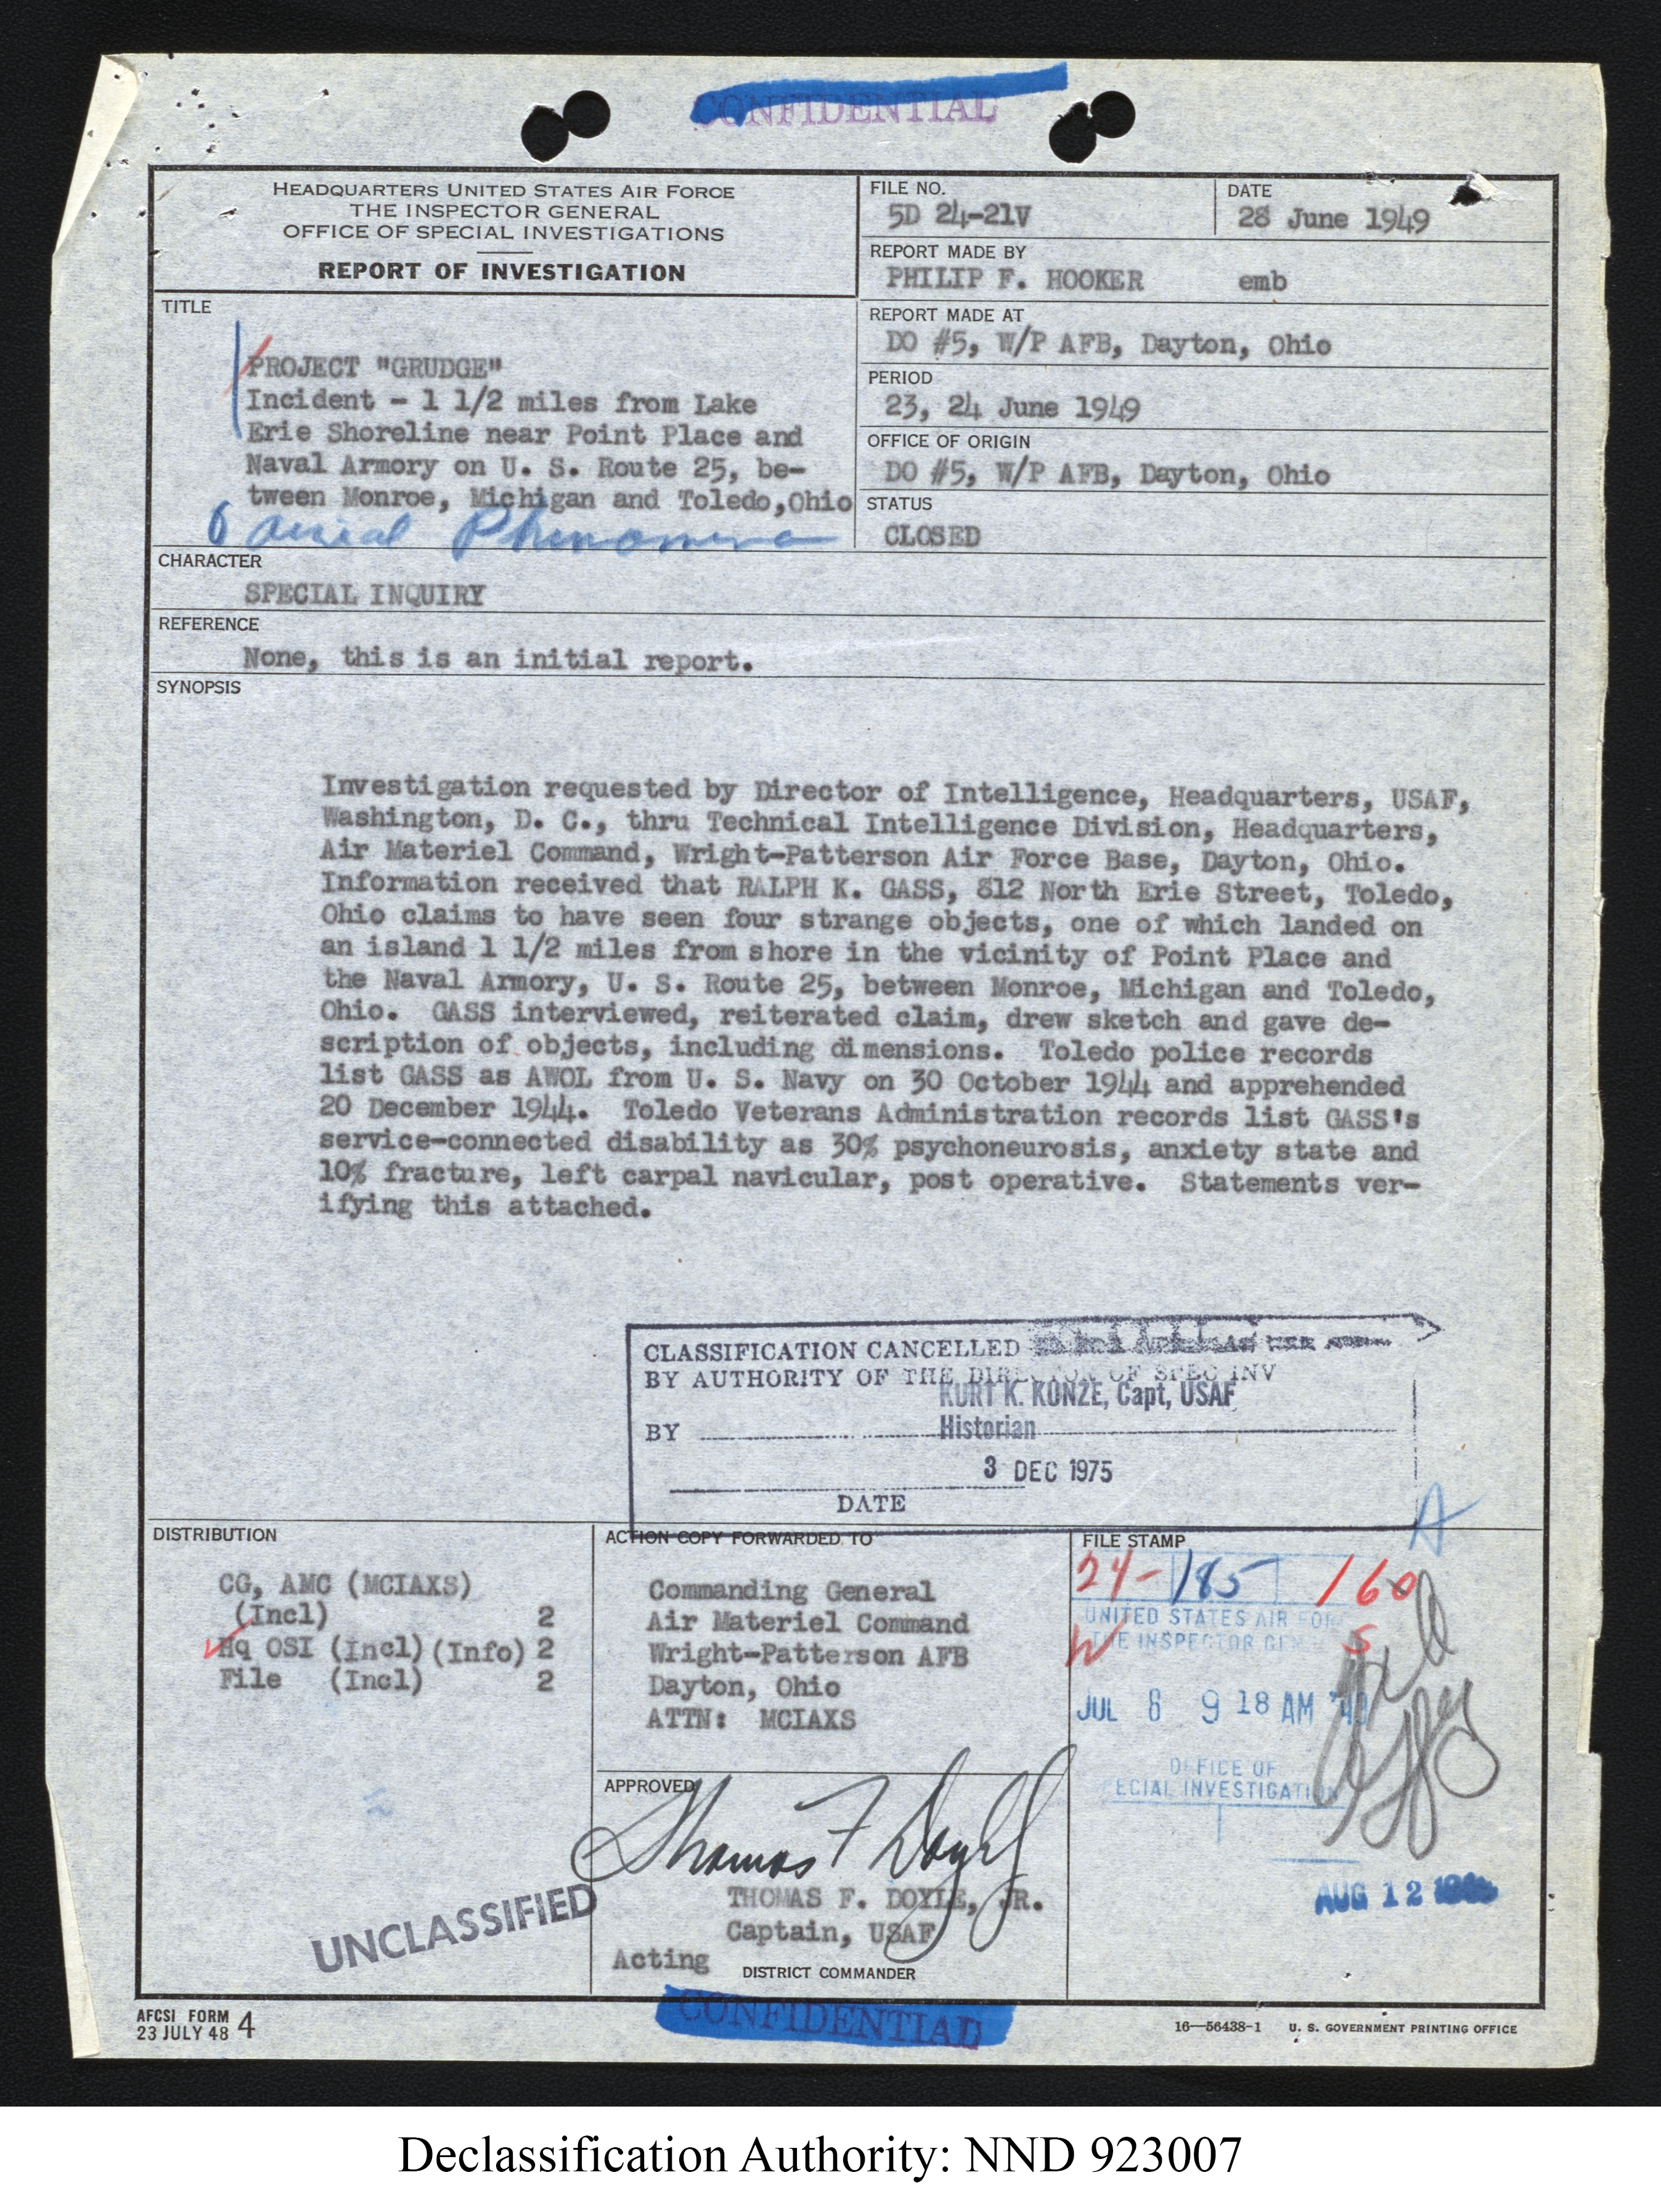 CONFIDENTIAL
HEADQUARTERS UNITED STATES AIR FORCE
THE INSPECTOR GENERAL
OFFICE OF SPECIAL INVESTIGATIONS
REPORT OF INVESTIGATION
FILE NO.
5D 24-21V
DATE
28 June 1949
REPORT MADE BY
PHILIP F. HOOKER emb
REPORT MADE AT
DO #5, W/P AFB, Dayton, Ohio
PERIOD
23, 24 June 1949
OFFICE OF ORIGIN
DO #5, W/P AFB, Dayton, Ohio
STATUS
CLOSED
TITLE
PROJECT "GRUDGE"
Incident - 1 1/2 miles from Lake
Erie Shoreline near Point Place and
Naval Armory on U. S. Route 25, be-
tween Monroe, Michigan and Toledo,Ohio
Phenomena
CHARACTER
SPECIAL INQUIRY
REFERENCE
None, this is an initial report.
SYNOPSIS
Investigation requested by Director of Intelligence, Headquarters, USAF,
Washington, D. C., thru Technical Intelligence Division, Headquarters,
Air Materiel Command, Wright-Patterson Air Force Base, Dayton, Ohio.
Information received that RALPH K. GASS, 812 North Erie Street, Toledo,
Ohio claims to have seen four strange objects, one of which landed on
an island 1 1/2 miles from shore in the vicinity of Point Place and
the Naval Armory, U. S. Route 25, between Monroe, Michigan and Toledo,
Ohio. GASS interviewed, reiterated claim, drew sketch and gave de-
scription of objects, including dimensions. Toledo police records
list GASS as AWOL from U. S. Navy on 30 October 1944 and apprehended
20 December 1944. Toledo Veterans Administration records list GASS's
service-connected disability as 30% psychoneurosis, anxiety state and
10% fracture, left carpal navicular, post operative. Statements ver-
ifying this attached.
CLASSIFICATION CANCELLED
BY AUTHORITY OF THE DIRECTOR OF SPEC INV
KURT K. KONZE, Capt, USAF
BY Historian
3 DEC 1975
DATE
DISTRIBUTION
CG, AMC (MCIAXS)
(Incl) 2
Hq OSI (Incl) (Info) 2
File (Incl) 2
ACTION COPY FORWARDED TO
Commanding General
Air Materiel Command
Wright-Patterson AFB
Dayton, Ohio
ATTN: MCIAXS
APPROVED
Thomas F Doyle Jr
THOMAS F. DOYLE, JR.
Captain, USAF
Acting DISTRICT COMMANDER
A
FILE STAMP
24-185 160
UNITED STATES AIR FOR
THE INSPECTOR GEN
S
JUL 8 9 18 AM '49
OFFICE OF
ECIAL INVESTIGATION
AUG 12
UNCLASSIFIED
CONFIDENTIAL
AFCSI FORM 4
23 JULY 48
16—56438-1 U. S. GOVERNMENT PRINTING OFFICE
Declassification Authority: NND 923007